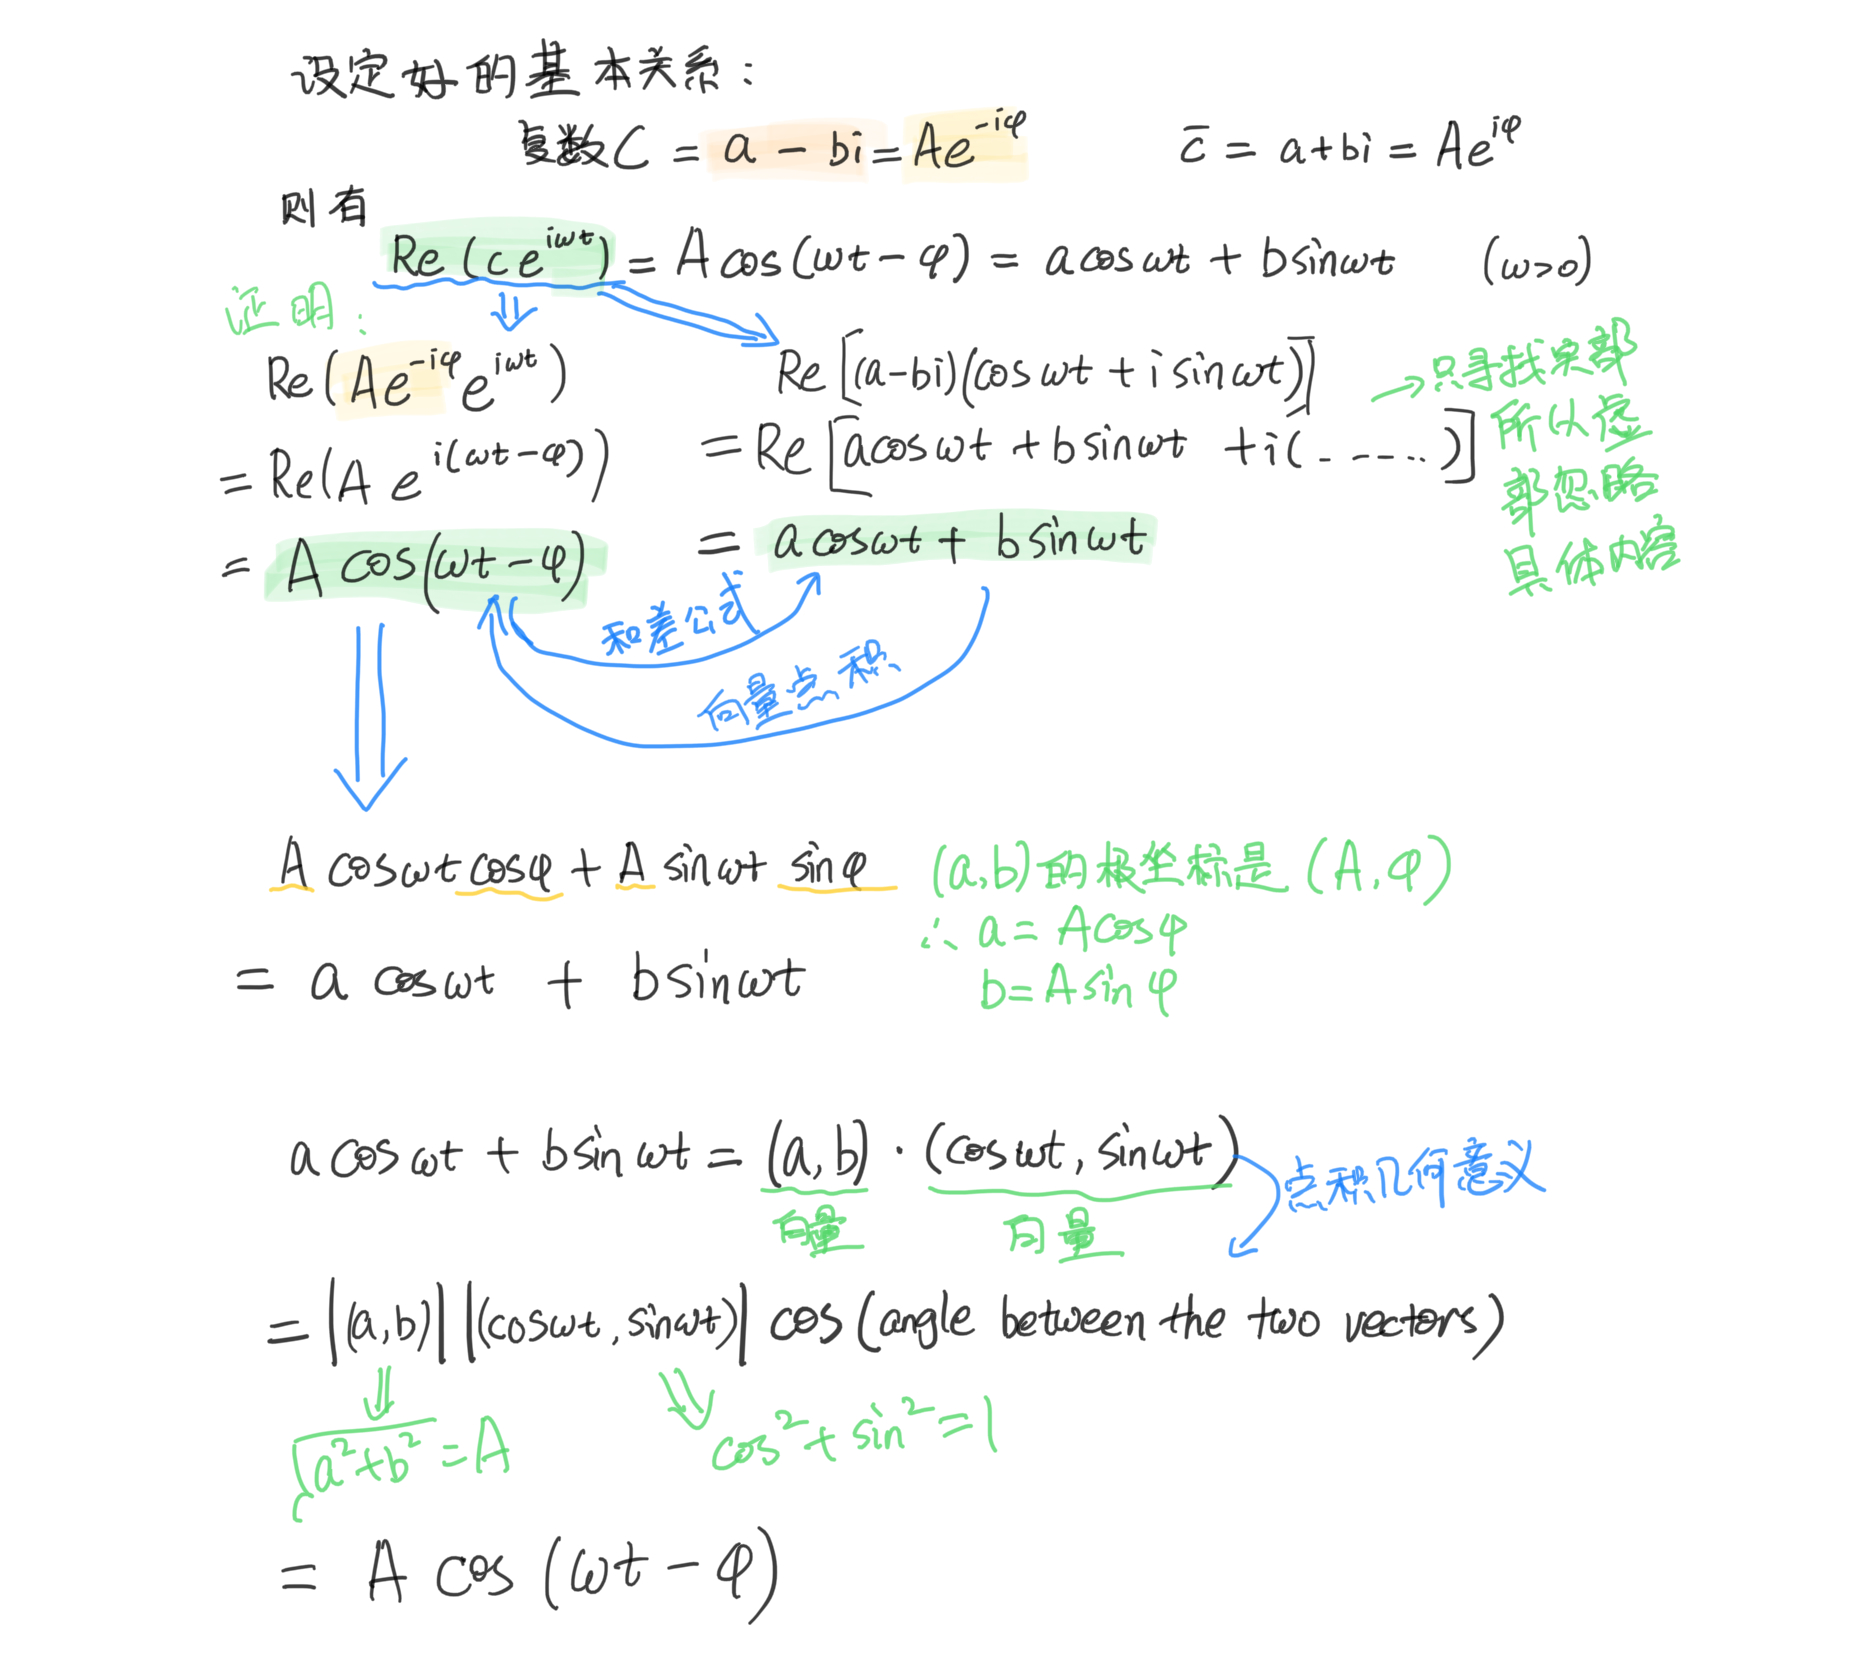 设定好的基本关系：
复数C = a - bi = Ae^{-iφ}    c̄ = a+bi = Ae^{iφ}
则有
Re(ce^{iωt}) = A cos(ωt-φ) = a cos ωt + b sin ωt    (ω>0)
证明：
Re(Ae^{-iφ}e^{iωt})
= Re(A e^{i(ωt-φ)})
= A cos(ωt-φ)
Re[(a-bi)(cos ωt + i sin ωt)]
= Re[a cos ωt + b sin ωt + i(------)]
= a cos ωt + b sin ωt
→只寻找实部
所以虚
部忽略
具体内容
和差公式
向量点积
A cos ωt cos φ + A sin ωt sin φ
= a cos ωt + b sin ωt
(a,b)的极坐标是(A,φ)
∴ a = A cos φ
b = A sin φ
a cos ωt + b sin ωt = (a,b)·(cos ωt, sin ωt)
向量    向量
点积几何意义
= |(a,b)| |(cos ωt, sin ωt)| cos (angle between the two vectors)
√(a²+b²) = A    cos² + sin² = 1
= A cos (ωt - φ)